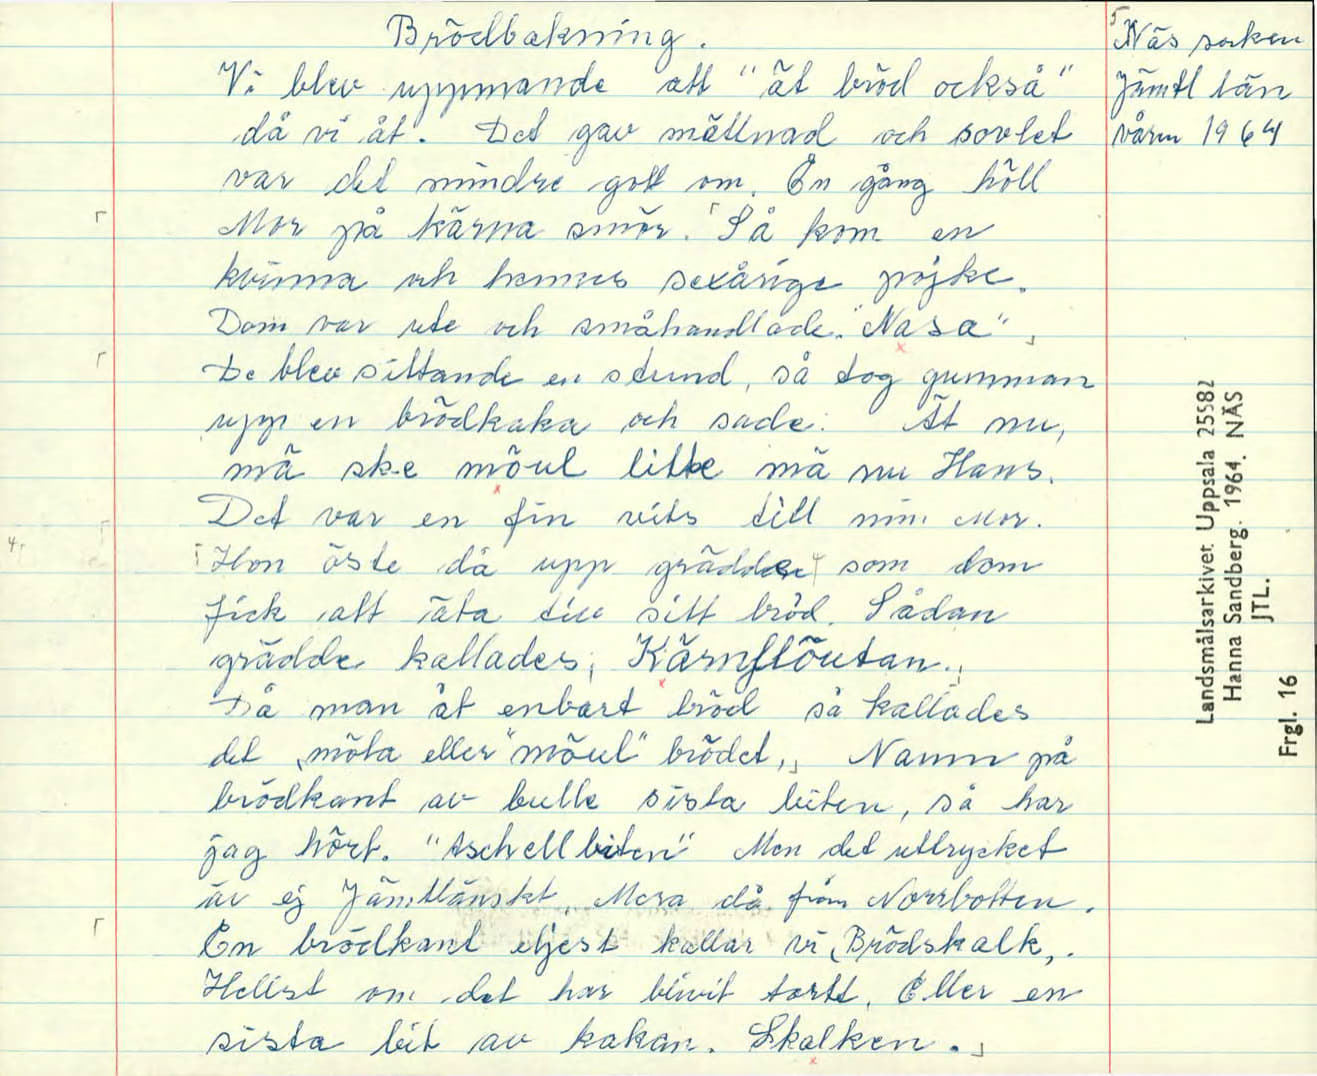 Brödbakning.
Vi blev uppmande att "ät bröd också"
då vi åt. Det gav mättnad och sovlet
var det mindre gott om. En gång höll
Mor på kärna smör. Så kom en
kvinna och hennes sexårige pojke.
Dom var ute och småhandlade. "Nasa"
De blev sittande en stund, så tog gumman
upp en brödkaka och sade: Ät nu,
mä ske möul litte mä nu Hans.
Det var en fin vits till min Mor.
Hon öste då upp grädde som dom
fick att äta till sitt bröd. Sådan
grädde kallades; Kärnflöutan.
Då man åt enbart bröd så kallades
det möla eller "möul" brödet, Namn på
brödkant av bulle sista biten, så har
jag hört. "Aschellbiten" Men det uttrycket
är ej Jämtlänskt. Mera då från Norrbotten.
En brödkant eljest kallar vi Brödskalk,.
Hellst om det har blivit tortt. Eller en
sista bit av kakan. Skalken.
5
Näs socken
Jämtl län
våren 1964
4
Landsmålsarkivet Uppsala 25582
Hanna Sandberg. 1964. NÄS
JTL.
Frgl. 16